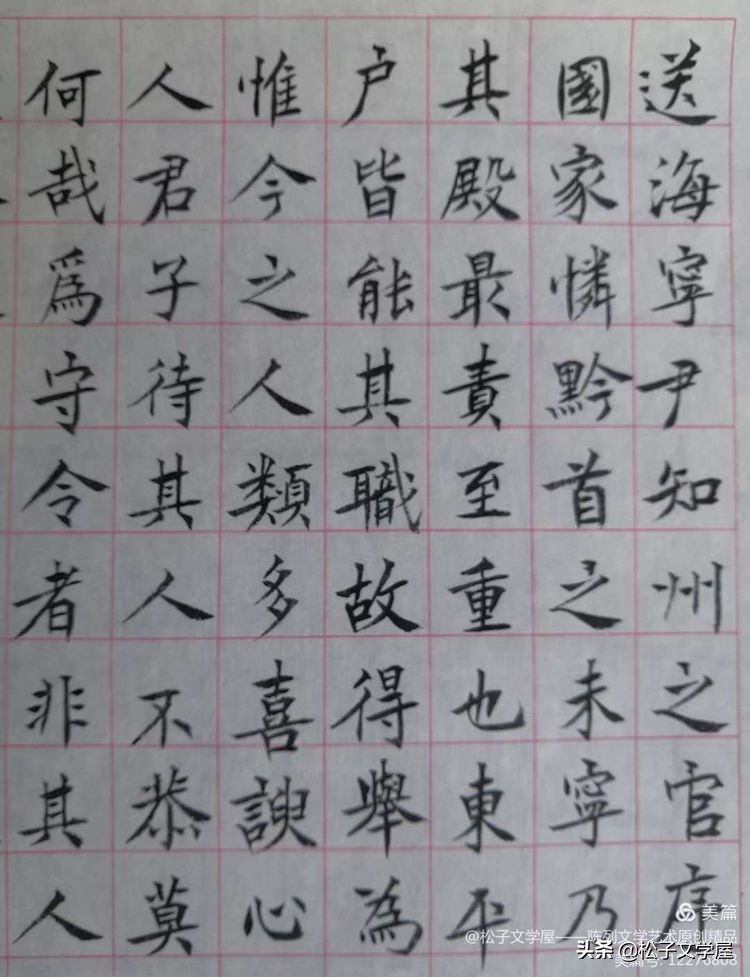 送海寧尹知州之官序
國家憐黔首之未寧乃
其殿最責至重也東平
户皆能其職故得舉為
惟今之人類多喜諛心
人君子待其人不恭莫
何哉爲守令者非其人
美篇
@松子文学屋——陈列文学艺术原创精品
美篇号:12276808
头条 @松子文学屋